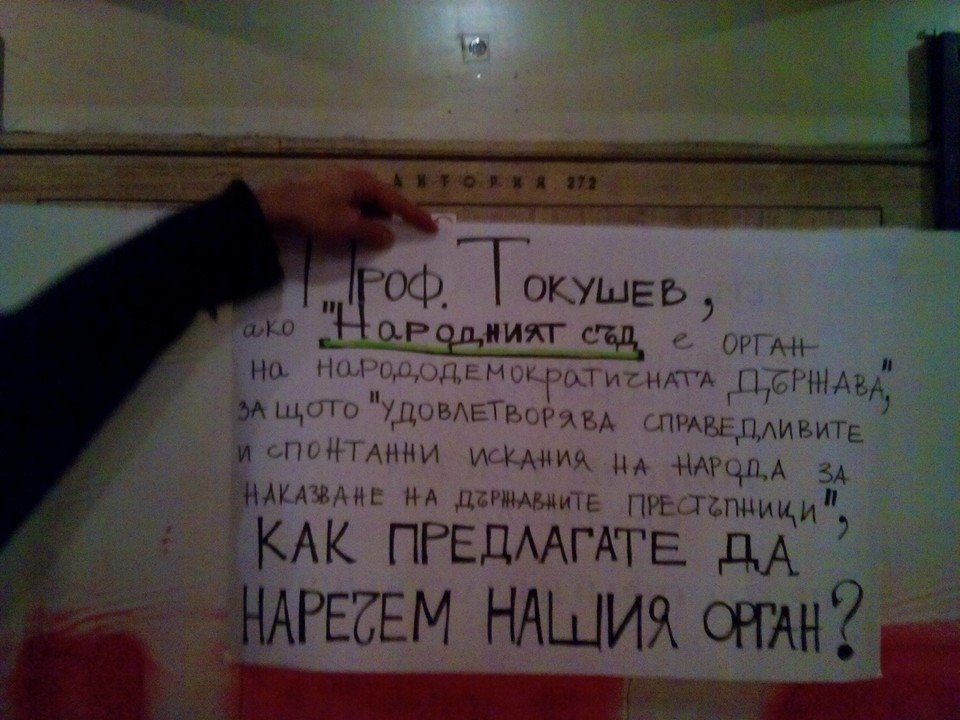 АУДИТОРИЯ 272
Проф. Токушев,
ако "Народният съд е орган
на народодемократичната Държава",
защото "удовлетворява справедливите
и спонтанни искания на народа за
наказване на държавните престъпници",
КАК ПРЕДЛАГАТЕ ДА
НАРЕЧЕМ НАШИЯ ОРГАН?